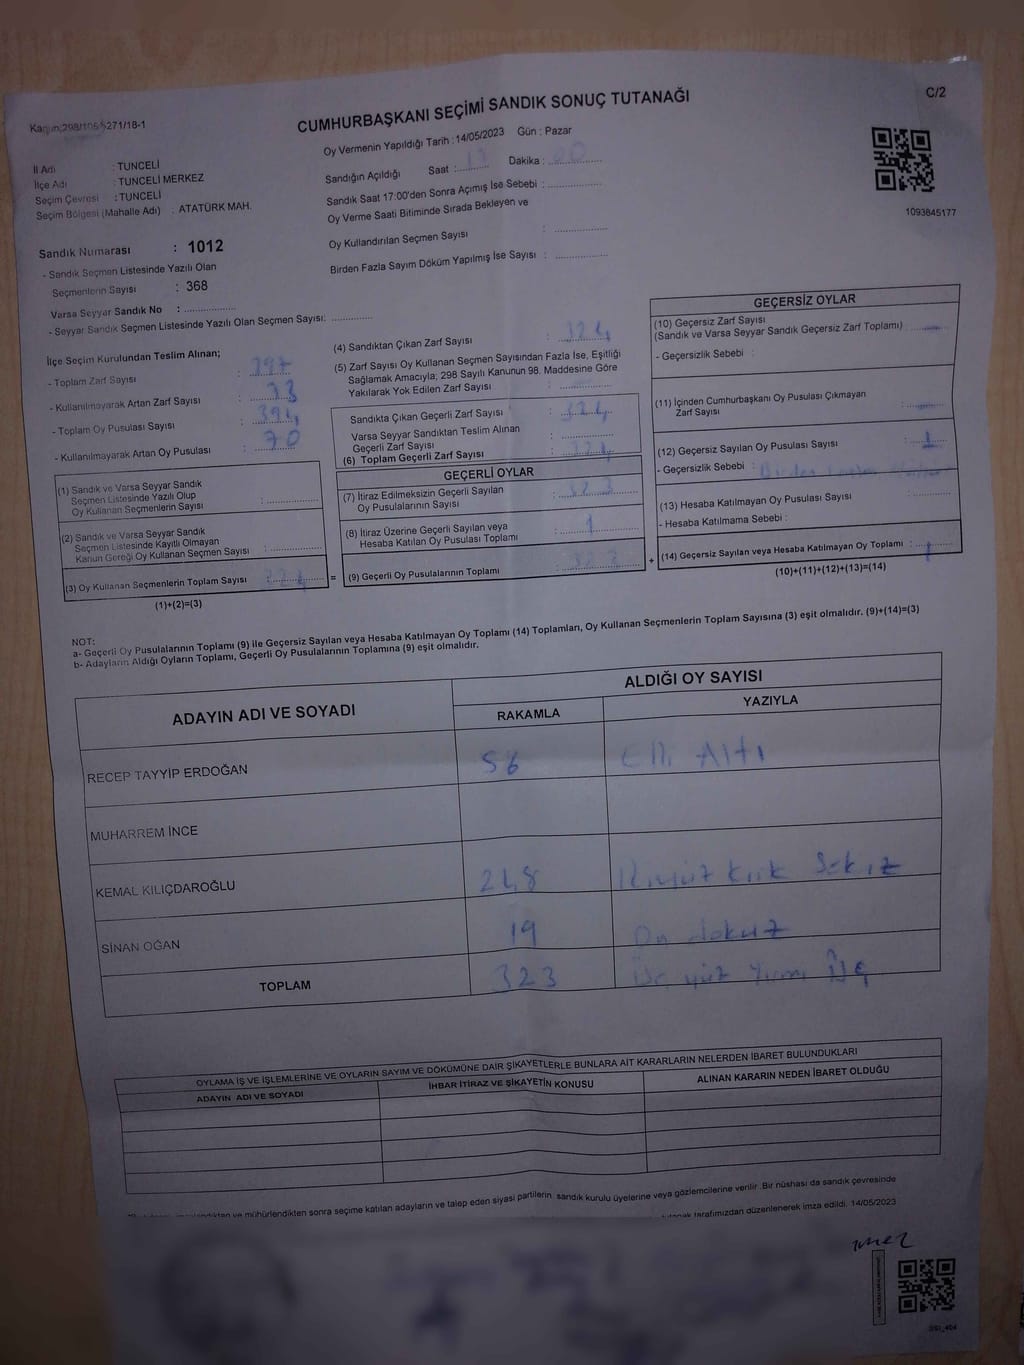 C/2
Kanun:298/106
271/18-1
CUMHURBAŞKANI SEÇİMİ SANDIK SONUÇ TUTANAĞI
Oy Vermenin Yapıldığı Tarih : 14/05/2023 Gün : Pazar
İl Adı : TUNCELİ
İlçe Adı : TUNCELİ MERKEZ
Seçim Çevresi : TUNCELİ
Seçim Bölgesi (Mahalle Adı) : ATATÜRK MAH.
Sandığın Açıldığı Saat : 17 Dakika : 00
Sandık Saat 17:00'den Sonra Açımış İse Sebebi :
Oy Verme Saati Bitiminde Sırada Bekleyen ve
Oy Kullandırılan Seçmen Sayısı :
Birden Fazla Sayım Döküm Yapılmış İse Sayısı :
1093845177
Sandık Numarası : 1012
- Sandık Seçmen Listesinde Yazılı Olan
Seçmenlerin Sayısı : 368
Varsa Seyyar Sandık No :
- Seyyar Sandık Seçmen Listesinde Yazılı Olan Seçmen Sayısı:
İlçe Seçim Kurulundan Teslim Alınan;
- Toplam Zarf Sayısı : 397
- Kullanılmayarak Artan Zarf Sayısı : 73
- Toplam Oy Pusulası Sayısı : 394
- Kullanılmayarak Artan Oy Pusulası : 70
(1) Sandık ve Varsa Seyyar Sandık
Seçmen Listesinde Yazılı Olup
Oy Kullanan Seçmenlerin Sayısı :
(2) Sandık ve Varsa Seyyar Sandık
Seçmen Listesinde Kayıtlı Olmayan
Kanun Gereği Oy Kullanan Seçmen Sayısı :
(3) Oy Kullanan Seçmenlerin Toplam Sayısı : 324
(1)+(2)=(3)
=
(4) Sandıktan Çıkan Zarf Sayısı : 324
(5) Zarf Sayısı Oy Kullanan Seçmen Sayısından Fazla İse, Eşitliği
Sağlamak Amacıyla; 298 Sayılı Kanunun 98. Maddesine Göre
Yakılarak Yok Edilen Zarf Sayısı :
Sandıkta Çıkan Geçerli Zarf Sayısı : 324
Varsa Seyyar Sandıktan Teslim Alınan
Geçerli Zarf Sayısı :
(6) Toplam Geçerli Zarf Sayısı : 324
GEÇERLİ OYLAR
(7) İtiraz Edilmeksizin Geçerli Sayılan
Oy Pusulalarının Sayısı : 323
(8) İtiraz Üzerine Geçerli Sayılan veya
Hesaba Katılan Oy Pusulası Toplamı :
(9) Geçerli Oy Pusulalarının Toplamı : 323
+
GEÇERSİZ OYLAR
(10) Geçersiz Zarf Sayısı
(Sandık ve Varsa Seyyar Sandık Geçersiz Zarf Toplamı) :
- Geçersizlik Sebebi :
(11) İçinden Cumhurbaşkanı Oy Pusulası Çıkmayan
Zarf Sayısı :
(12) Geçersiz Sayılan Oy Pusulası Sayısı : 1
- Geçersizlik Sebebi : Birden
(13) Hesaba Katılmayan Oy Pusulası Sayısı :
- Hesaba Katılmama Sebebi :
(14) Geçersiz Sayılan veya Hesaba Katılmayan Oy Toplamı : 1
(10)+(11)+(12)+(13)=(14)
NOT:
a- Geçerli Oy Pusulalarının Toplamı (9) ile Geçersiz Sayılan veya Hesaba Katılmayan Oy Toplamı (14) Toplamları, Oy Kullanan Seçmenlerin Toplam Sayısına (3) eşit olmalıdır. (9)+(14)=(3)
b- Adayların Aldığı Oyların Toplamı, Geçerli Oy Pusulalarının Toplamına (9) eşit olmalıdır.
ADAYIN ADI VE SOYADI
ALDIĞI OY SAYISI
RAKAMLA YAZIYLA
RECEP TAYYİP ERDOĞAN 56 Elli Altı
MUHARREM İNCE
KEMAL KILIÇDAROĞLU 248 İkiyüz kırk Sekiz
SİNAN OĞAN 19 On dokuz
TOPLAM 323 Üç yüz Yirmi Üç
OYLAMA İŞ VE İŞLEMLERİNE VE OYLARIN SAYIM VE DÖKÜMÜNE DAİR ŞİKAYETLERLE BUNLARA AİT KARARLARIN NELERDEN İBARET BULUNDUKLARI
ADAYIN ADI VE SOYADI İHBAR İTİRAZ VE ŞİKAYETİN KONUSU ALINAN KARARIN NEDEN İBARET OLDUĞU
mühürlendikten sonra seçime katılan adayların ve talep eden siyasi partilerin sandık kurulu üyelerine veya gözlemcilerine verilir. Bir nüshası da sandık çevresinde
tarafımızdan düzenlenerek imza edildi. 14/05/2023